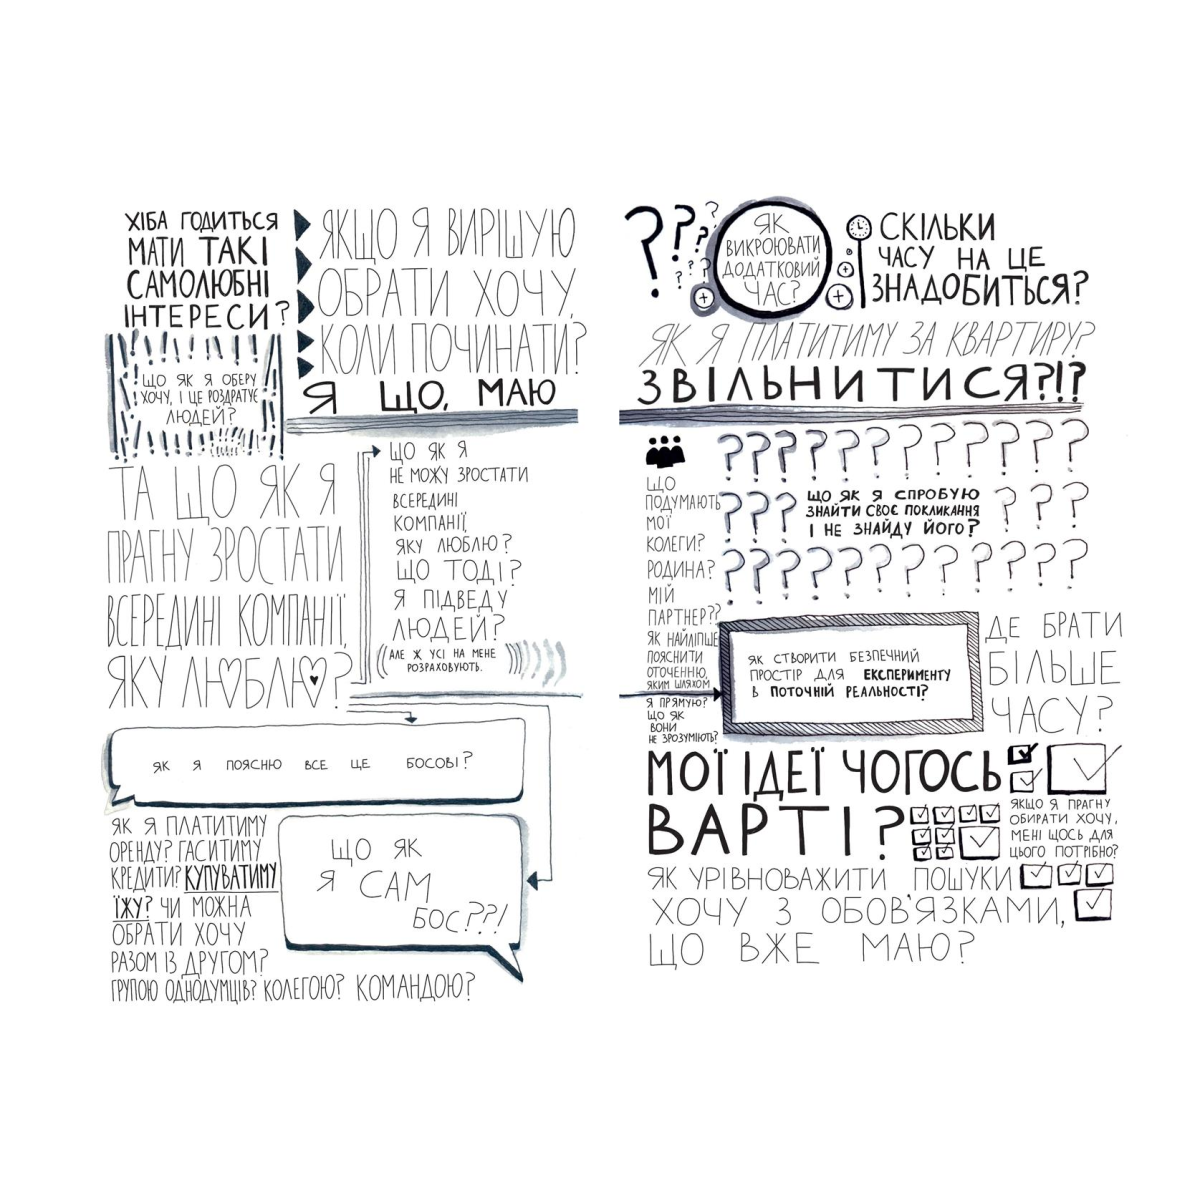 ХІБА ГОДИТЬСЯ
МАТИ ТАКІ
САМОЛЮБНІ
ІНТЕРЕСИ?
ЯКЩО Я ВИРІШУЮ
ОБРАТИ ХОЧУ,
КОЛИ ПОЧИНАТИ?
ЩО ЯК Я ОБЕРУ
ХОЧУ, І ЦЕ РОЗДРАТУЄ
ЛЮДЕЙ?
Я ЩО, МАЮ
ТА ЩО ЯК Я
ПРАГНУ ЗРОСТАТИ
ВСЕРЕДИНІ КОМПАНІЇ,
ЯКУ ЛЮБЛЮ?
ЩО ЯК Я
НЕ МОЖУ ЗРОСТАТИ
ВСЕРЕДИНІ
КОМПАНІЇ,
ЯКУ ЛЮБЛЮ?
ЩО ТОДІ?
Я ПІДВЕДУ
ЛЮДЕЙ?
(АЛЕ Ж УСІ НА МЕНЕ
РОЗРАХОВУЮТЬ.)
ЯК Я ПОЯСНЮ ВСЕ ЦЕ БОСОВІ?
ЯК Я ПЛАТИТИМУ
ОРЕНДУ? ГАСИТИМУ
КРЕДИТИ? КУПУВАТИМУ
ЇЖУ? ЧИ МОЖНА
ОБРАТИ ХОЧУ
РАЗОМ ІЗ ДРУГОМ?
ГРУПОЮ ОДНОДУМЦІВ? КОЛЕГОЮ? КОМАНДОЮ?
ЩО ЯК
Я САМ
БОС??!
? ? ? ? ? ? ? ?
ЯК
ВИКРОЮВАТИ
ДОДАТКОВИЙ
ЧАС?
СКІЛЬКИ
ЧАСУ НА ЦЕ
ЗНАДОБИТЬСЯ?
ЯК Я ПЛАТИТИМУ ЗА КВАРТИРУ?
ЗВІЛЬНИТИСЯ?!?
? ? ? ? ? ? ? ? ? ? ? ? ?
ЩО
ПОДУМАЮТЬ
МОЇ
КОЛЕГИ?
РОДИНА?
МІЙ
ПАРТНЕР??
ЯК НАЙЛІПШЕ
ПОЯСНИТИ
ОТОЧЕННЮ,
ЯКИМ ШЛЯХОМ
Я ПРЯМУЮ?
ЩО ЯК
ВОНИ
НЕ ЗРОЗУМІЮТЬ?
? ? ? ЩО ЯК Я СПРОБУЮ ? ? ?
ЗНАЙТИ СВОЄ ПОКЛИКАННЯ
І НЕ ЗНАЙДУ ЙОГО?
? ? ? ? ? ? ? ? ? ? ? ?
ЯК СТВОРИТИ БЕЗПЕЧНИЙ
ПРОСТІР ДЛЯ ЕКСПЕРИМЕНТУ
В ПОТОЧНІЙ РЕАЛЬНОСТІ?
ДЕ БРАТИ
БІЛЬШЕ
ЧАСУ?
МОЇ ІДЕЇ ЧОГОСЬ
ВАРТІ?
ЯКЩО Я ПРАГНУ
ОБИРАТИ ХОЧУ,
МЕНІ ЩОСЬ ДЛЯ
ЦЬОГО ПОТРІБНО?
ЯК УРІВНОВАЖИТИ ПОШУКИ
ХОЧУ З ОБОВ'ЯЗКАМИ,
ЩО ВЖЕ МАЮ?